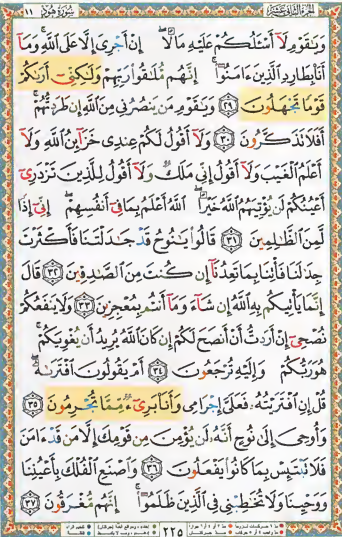 سورة هود ١١
الجزء الثاني عشر
وَيَٰقَوْمِ لَآ أَسْـَٔلُكُمْ عَلَيْهِ مَالًا ۖ إِنْ أَجْرِىَ إِلَّا عَلَى ٱللَّهِ ۚ وَمَآ
أَنَا۠ بِطَارِدِ ٱلَّذِينَ ءَامَنُوٓا۟ ۚ إِنَّهُم مُّلَٰقُوا۟ رَبِّهِمْ وَلَٰكِنِّىٓ أَرَىٰكُمْ
قَوْمًا تَجْهَلُونَ ٢٩ وَيَٰقَوْمِ مَن يَنصُرُنِى مِنَ ٱللَّهِ إِن طَرَدتُّهُمْ ۚ
أَفَلَا تَذَكَّرُونَ ٣٠ وَلَآ أَقُولُ لَكُمْ عِندِى خَزَآئِنُ ٱللَّهِ وَلَآ
أَعْلَمُ ٱلْغَيْبَ وَلَآ أَقُولُ إِنِّى مَلَكٌ وَلَآ أَقُولُ لِلَّذِينَ تَزْدَرِىٓ
أَعْيُنُكُمْ لَن يُؤْتِيَهُمُ ٱللَّهُ خَيْرًا ۖ ٱللَّهُ أَعْلَمُ بِمَا فِىٓ أَنفُسِهِمْ ۖ إِنِّىٓ إِذًا
لَّمِنَ ٱلظَّٰلِمِينَ ٣١ قَالُوا۟ يَٰنُوحُ قَدْ جَٰدَلْتَنَا فَأَكْثَرْتَ
جِدَٰلَنَا فَأْتِنَا بِمَا تَعِدُنَآ إِن كُنتَ مِنَ ٱلصَّٰدِقِينَ ٣٢ قَالَ
إِنَّمَا يَأْتِيكُم بِهِ ٱللَّهُ إِن شَآءَ وَمَآ أَنتُم بِمُعْجِزِينَ ٣٣ وَلَا يَنفَعُكُمْ
نُصْحِىٓ إِنْ أَرَدتُّ أَنْ أَنصَحَ لَكُمْ إِن كَانَ ٱللَّهُ يُرِيدُ أَن يُغْوِيَكُمْ ۚ
هُوَ رَبُّكُمْ وَإِلَيْهِ تُرْجَعُونَ ٣٤ أَمْ يَقُولُونَ ٱفْتَرَىٰهُ ۖ
قُلْ إِنِ ٱفْتَرَيْتُهُۥ فَعَلَىَّ إِجْرَامِى وَأَنَا۠ بَرِىٓءٌ مِّمَّا تُجْرِمُونَ ٣٥
وَأُوحِىَ إِلَىٰ نُوحٍ أَنَّهُۥ لَن يُؤْمِنَ مِن قَوْمِكَ إِلَّا مَن قَدْ ءَامَنَ
فَلَا تَبْتَئِسْ بِمَا كَانُوا۟ يَفْعَلُونَ ٣٦ وَٱصْنَعِ ٱلْفُلْكَ بِأَعْيُنِنَا
وَوَحْيِنَا وَلَا تُخَٰطِبْنِى فِى ٱلَّذِينَ ظَلَمُوٓا۟ ۚ إِنَّهُم مُّغْرَقُونَ ٣٧
٢٢٥